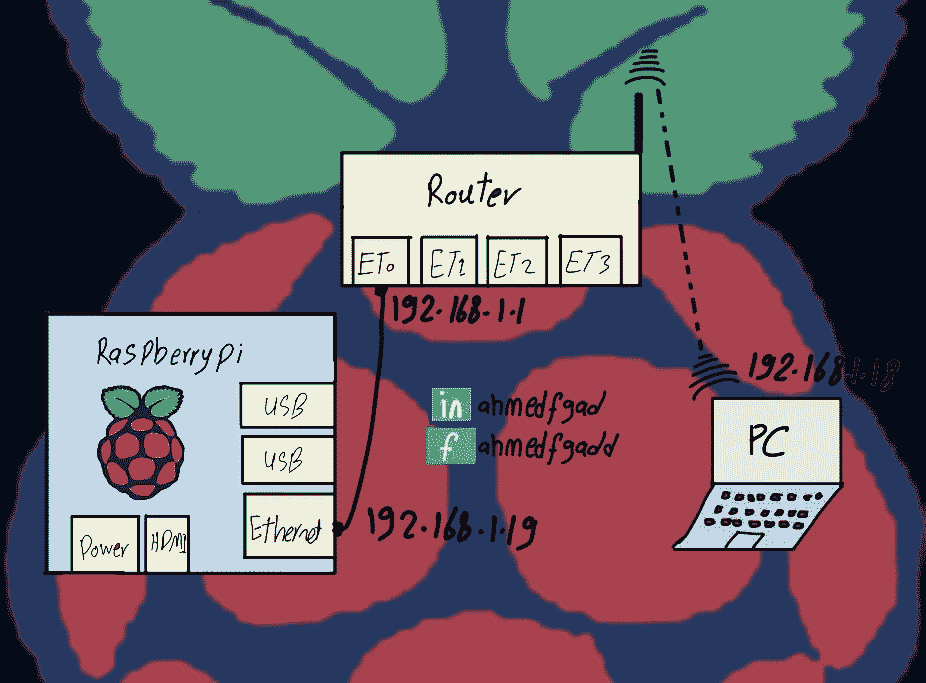 Router
ETo ET1 ET2 ET3
192.168.1.1
Raspberry pi
USB
USB
Ethernet
Power
HDMI
192.168.1.19
in ahmedfgad
f ahmedfgadd
192.168.1.18
PC